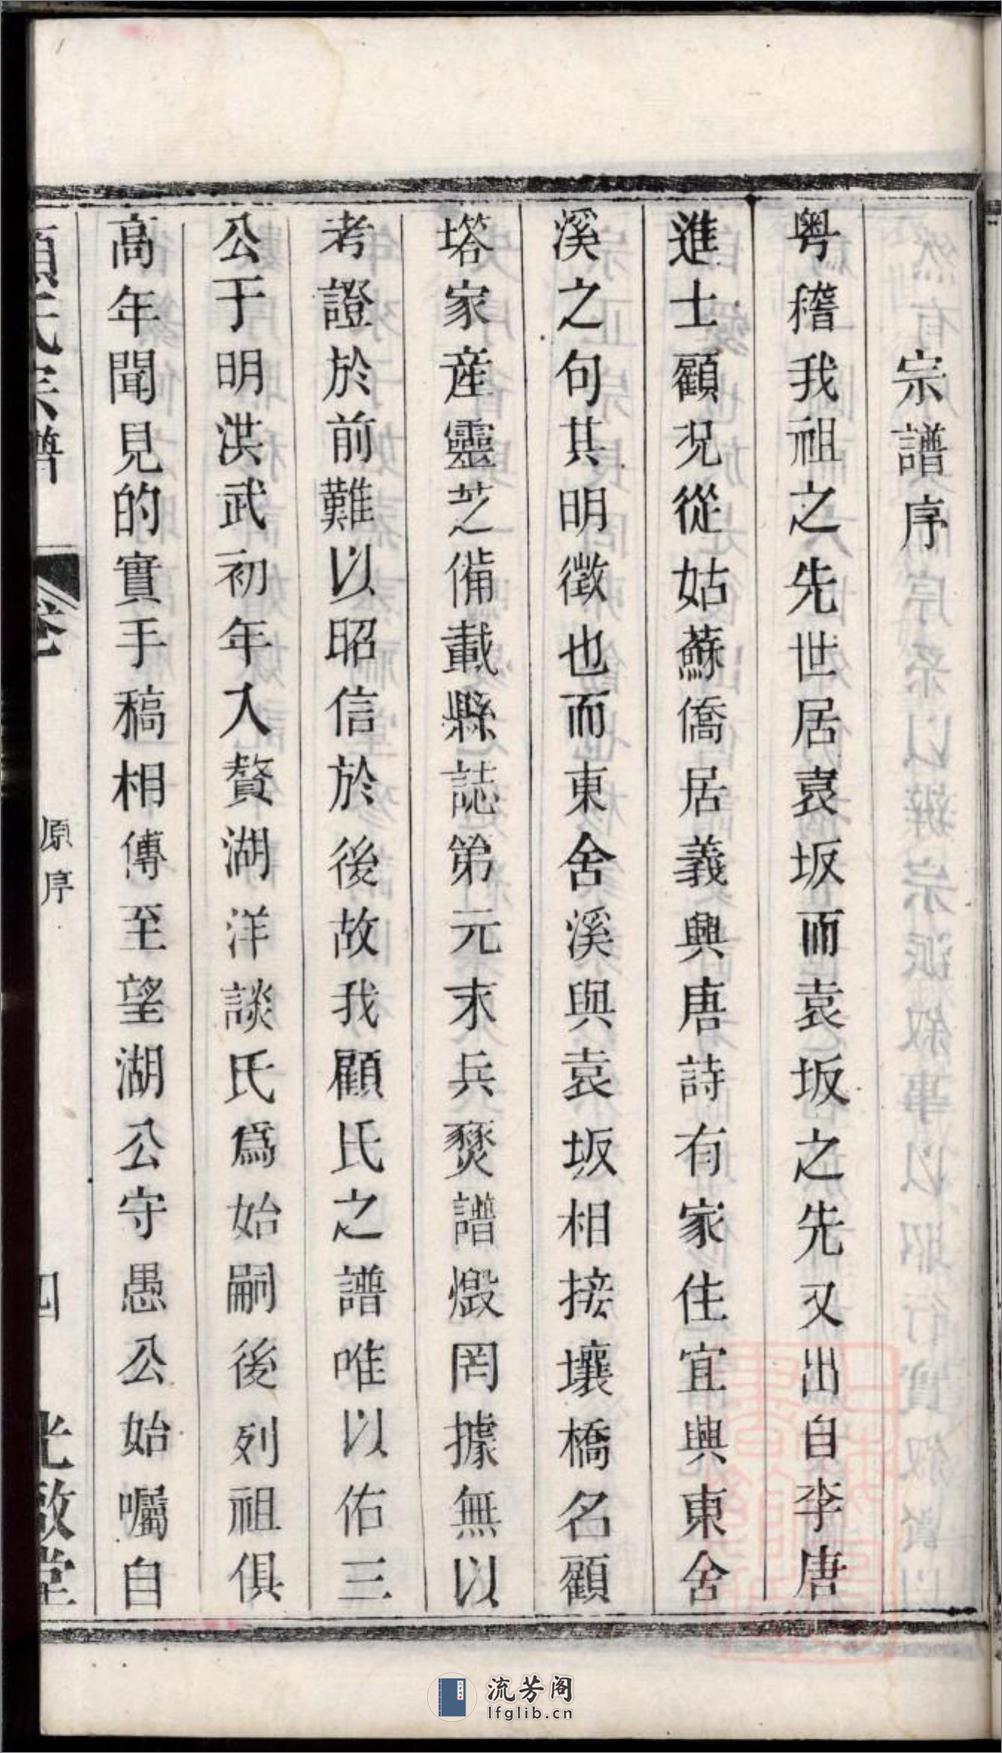 宗譜序
粤稽我祖之先世居袁坂而袁坂之先又出自李唐
進士顧况從姑蘇僑居義興唐詩有家住宜興東舍
溪之句其明徵也而東舍溪與袁坂相接壤橋名顧
塔家産靈芝備載縣誌第元末兵燹譜燬罔據無以
考證於前難以昭信於後故我顧氏之譜唯以佑三
公于明洪武初年入贅湖洋談氏爲始嗣後列祖俱
高年聞見的實手稿相傳至望湖公守愚公始囑自
顧氏宗譜
卷
原序
四
光啟堂
流芳阁
lfglib.cn